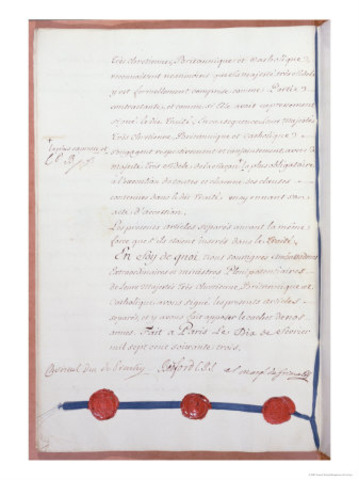 très Chretienne, Britannique et Catholique
reconnaissent neanmoins que sa Majesté très fidele
y est formellement comprise comme Partie
contractante, et comme si Elle avoit expressement
signé le dit Traité; En consequence, leurs Majestés
Très Chretienne, Britannique et Catholique
s'engagent
Majesté Très fidele, de la façon la plus obligatoire
à l'execution de toutes et chacune des clauses
contenues dans le dit Traité, moyennant son
acte d'accession.
Les presents articles separés auront la même
force que s'ils étoient inserés dans le Traité.
En foy de quoi, nous soussignés Ambassadeurs
Extraordinaires et ministres Plenipotentiaires
de leurs Majestés Très Chretienne, Britannique et
Catholique, avons signé les presents articles
separés, et y avons fait apposer le cachet de nos
armes. Fait à Paris Le Dix de Fevrier
mil sept cent soixante trois.
Choiseul Duc de Praslin Bedford C.P.S. el Marqs de Grimaldi